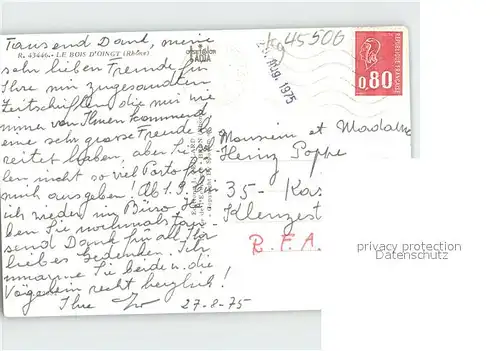 kg45506
R. 43446. - LE BOIS D'OINGT (Rhône)
RÉPUBLIQUE FRANÇAISE
0,80
1975
Tausend Dank, meine
sehr lieben Freunde für
Ihre mir zugesandten
Zeitschriften die mir wie
immer von Ihnen kommend
eine sehr grosse Freude be
reitet haben, aber
len nicht so viel Porto für
mich ausgeben! Ab 1.9.
ich wieder im Büro
ben Sie nochmals tau-
send Dank für all Ihr
liebes Gedenken. Ich
umarme Sie beide u. die
Vögelein recht herzlich!
Ihre
27-8-75
Monsieur et Madame
Heinz Poppe
35- Kas
Klenzest
R.F.A.
privacy protection
Datenschutz